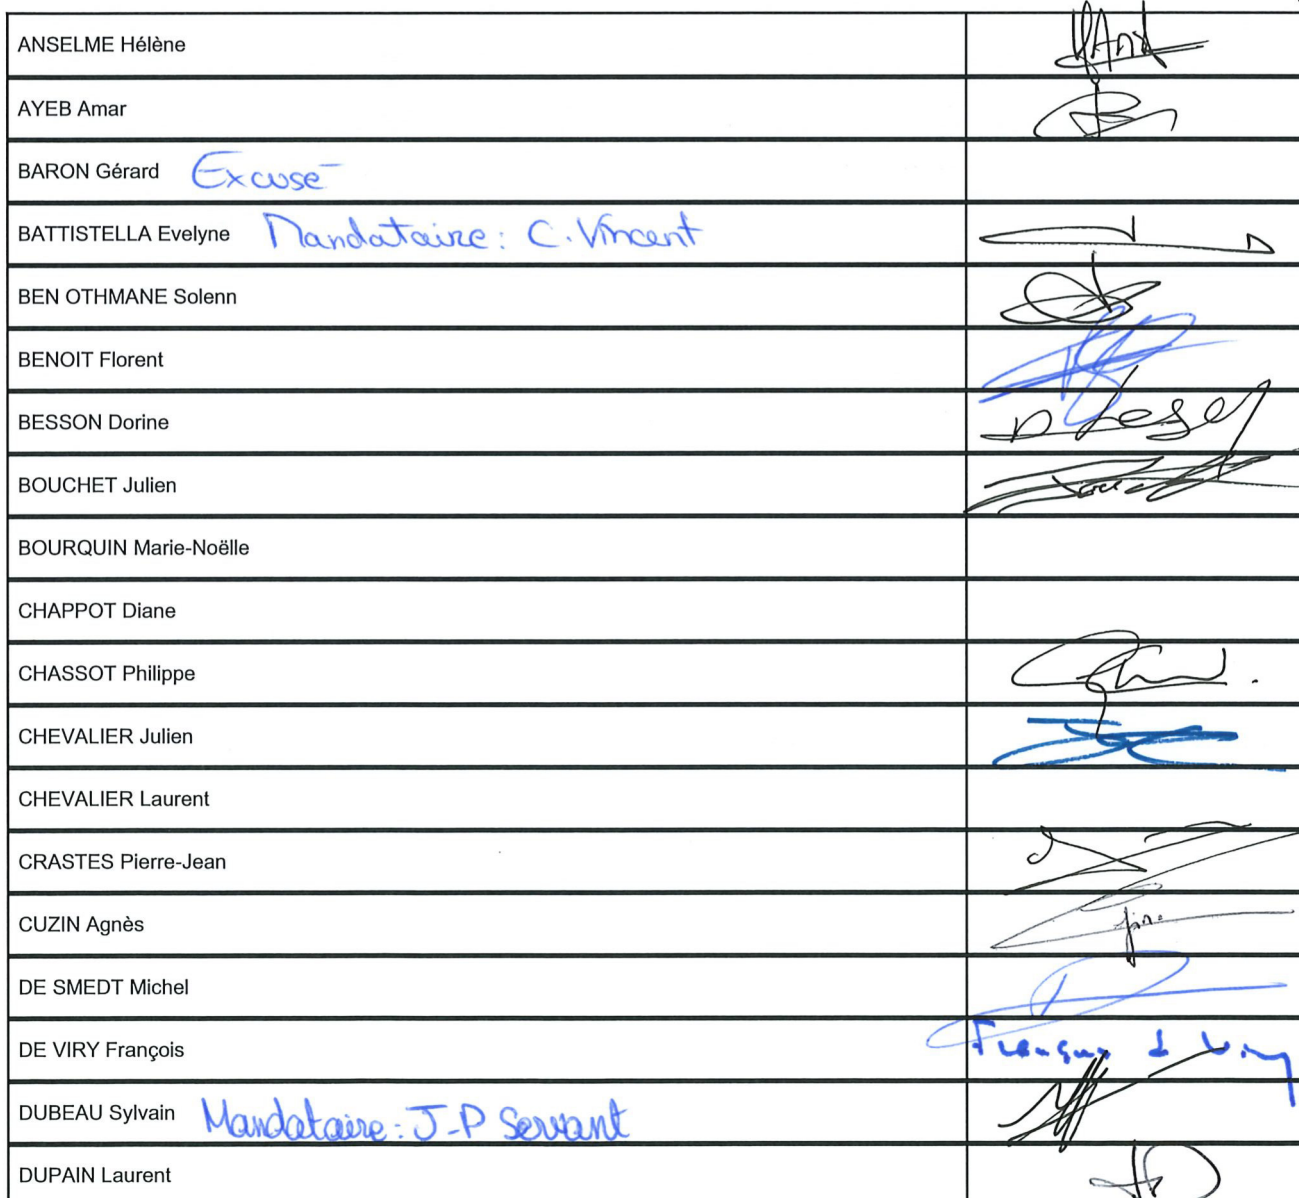 ANSELME Hélène
AYEB Amar
BARON Gérard Excusé
BATTISTELLA Evelyne Mandataire: C. Vincent
BEN OTHMANE Solenn
BENOIT Florent
BESSON Dorine
BOUCHET Julien
BOURQUIN Marie-Noëlle
CHAPPOT Diane
CHASSOT Philippe
CHEVALIER Julien
CHEVALIER Laurent
CRASTES Pierre-Jean
CUZIN Agnès
DE SMEDT Michel
DE VIRY François
DUBEAU Sylvain Mandataire: J-P Servant
DUPAIN Laurent